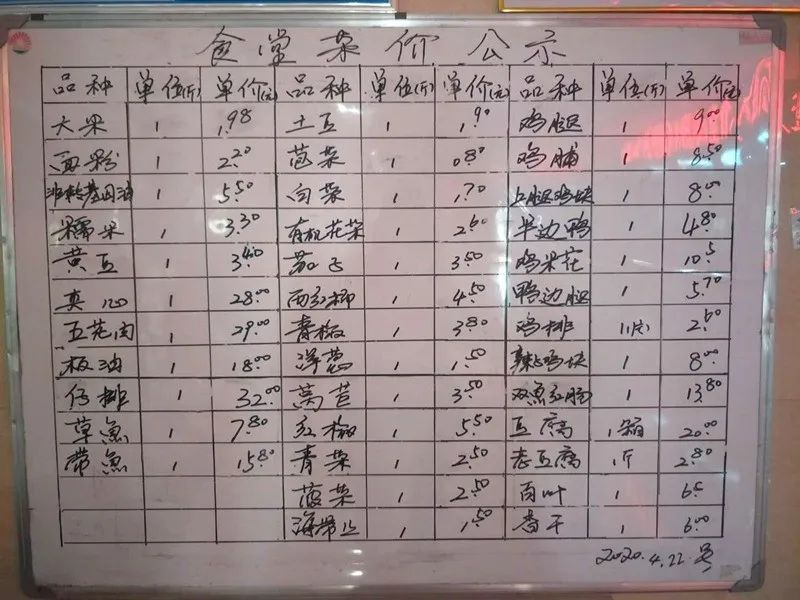 食堂菜价公示
品种 单位(斤) 单价(元) 品种 单位(斤) 单价(元) 品种 单位(斤) 单价(元)
大米 1 1.98 土豆 1 1.90 鸡腿 1 9.00
面粉 1 2.20 芭菜 1 0.80 鸡脯 1 8.50
非转基因油 1 5.50 白菜 1 1.70 上腿鸡块 1 8.00
糯米 1 3.30 有机花菜 1 2.60 半边鸭 1 4.80
黄豆 1 3.40 茄子 1 3.50 鸡米花 1 10.5
夹心 1 28.00 西红柿 1 4.50 鸭边腿 1 5.70
五花肉 1 29.00 青椒 1 3.80 鸡排 1(片) 2.60
板油 1 18.00 洋葱 1 1.50 辣子鸡块 1 8.00
仔排 1 32.00 莴苣 1 3.50 双鱼红肠 1 13.80
草鱼 1 7.80 红椒 1 5.50 豆腐 1箱 20.00
带鱼 1 15.80 青菜 1 2.50 老豆腐 1斤 2.80
菠菜 1 2.50 百叶 1 6.5
海带丝 1 1.50 香干 1 6.00
2020.4.22号